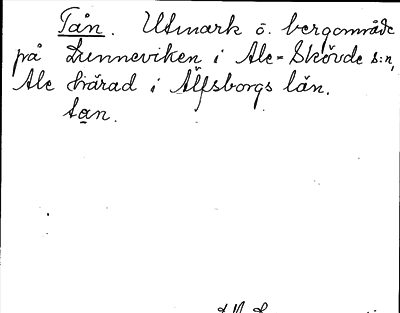 Tån. Utmark o. bergområde
på Lunneviken i Ale-Skövde s:n,
Ale härad i Älfsborgs län.
tan.